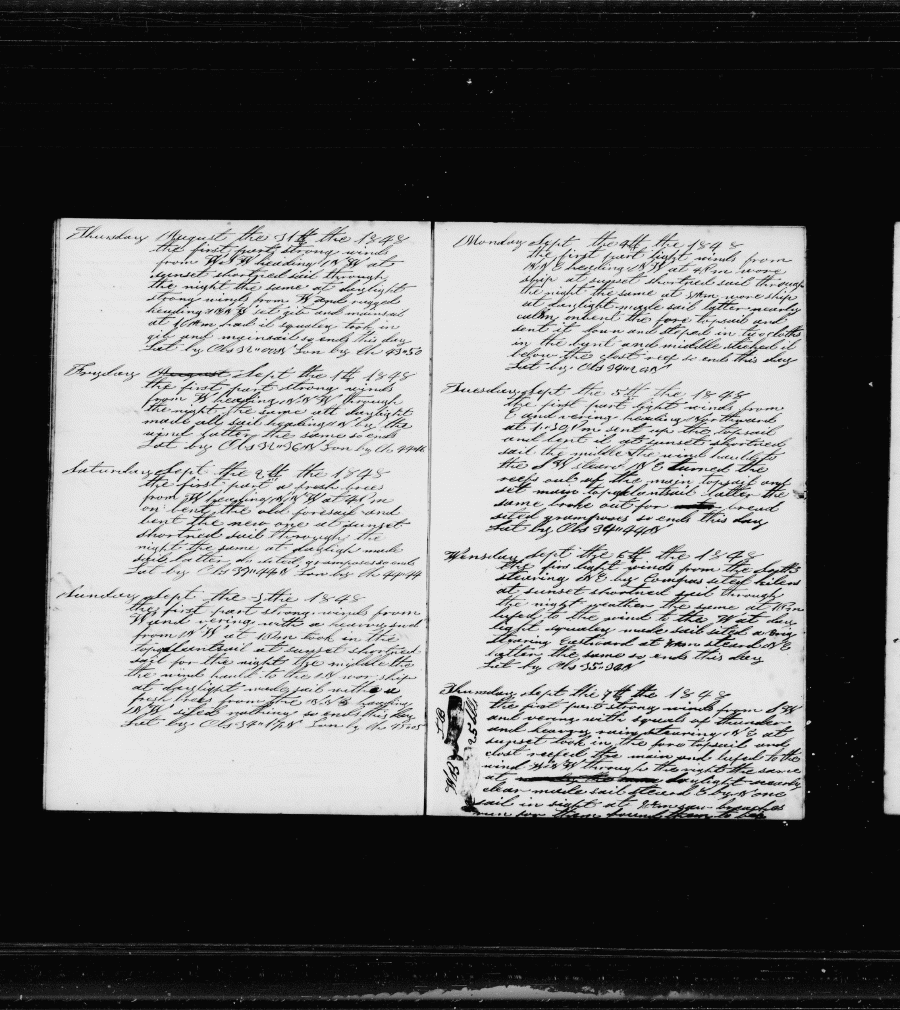 Thursday August the 31th the 1848
the first part strong winds
from W S W heading N W at
sunset shortned sail through
the night the same at daylight
strong winds from W and rugged
heading N N W set gib and mainsail
at 9 Am had it squaley took in
gib and mainsail so ends this day
Lat by Obs 32"00N Lon by Ch 43=50
Fryday August Sept the 1th 1848
the first part strong winds
from W heading N N W through
the night the same att daylight
made all sail heading N by the
wind latter the same so ends
Lat by Obs 32"36N Lon by Ch 44=46
Saturday Sept the 2th the 1848
the first part a fresh bries
from W heading N N W at 4 Pm
on bent the old foresail and
bent the new one at sunset
shortned sail through the
night the same at dayligh made
sail latter do sited grampuses so ends
Lat by Obs 33"44N Lon by Ch 44"44
Sunday Sept the 3the 1848
the first part strong winds from
W and vering with a heavey swd
from N W at took in the
topgalantsail at sunset shortned
sail for the night the middle the
the wind hauld to the N wor ship
at daylight made sail with a
fresh bries from the heading
sited nothing so ends this day
Lat by Obs 34"17N Lon by Ch 43=05
Monday Sept the 4th the 1848
the first part light winds from
N N E heading N W at 4 Pm wore
ship at sunset shortned sail through
the night the same at 3 Am wore ship
at daylight made sail latter nearly
calm onbent the fore topsail and
sent it down and stopd in two cloths
in the bunt and middle stiched it
below the clost reef so ends this day
Lat by Obs 34"
Tuesday Sept the 5th the 1848
the first part light winds from
E and vering heading Northward
at 1=30 Pm sent up the topsail
and bent it at sunset shortned
sail the middle the wind hauld to
the S W steard N E turned the
reefs out of the main topsail and
set main topgalantsail latter the
same broke out for bread
sited grampuses so ends this day
Lat by Obs 34"44N
Wensday Sept the 6th the 1848
the firs light winds from the
steering N E by Compas sited
at sunset shortned sail through
the night weather the same at
lufed to the wind to the W at day
light squaley made sail sited a brig
steering Eastward at steard N E
latter the same so ends this day
Lat by Obs 35=30N
Thursday Sept the 7th the 1848
the first part strong winds from S W
and vering with squals of thunder
and heavey rain steering N E at
sunset took in the fore topsail and
clost reefed the main and lufed to the
wind through the night the same
at daylight nearly
clear made sail steard E by N one
sail in sight at saw breaches
run for them found them to be